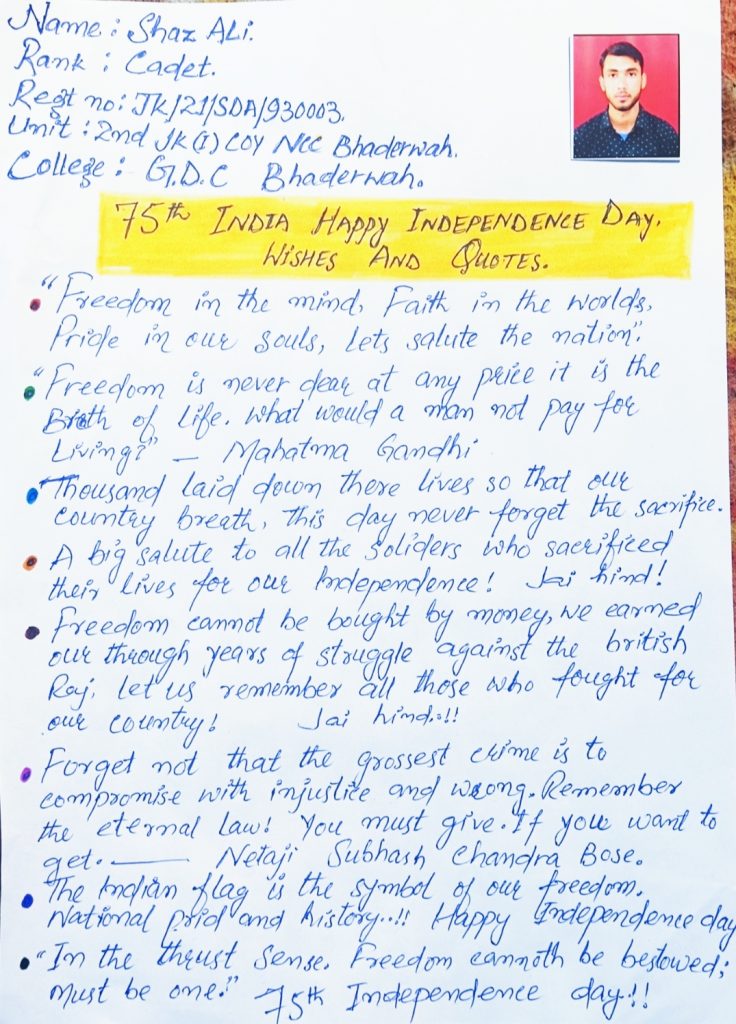 Name : Shaz ALi.
Rank : Cadet.
Regt no: JK/21/SDA/930003.
Unit : 2nd JK(I) COY NCC Bhaderwah.
College : G.D.C Bhaderwah.
75th INDIA HAPPY INDEPENDENCE DAY.
WISHES AND QUOTES.
"Freedom in the mind, Faith in the worlds,
Pride in our souls, lets salute the nation".
"Freedom is never dear at any price it is the
Breth of life. What would a man not pay for
Living?" – Mahatma Gandhi
Thousand laid down there lives so that our
country breath, this day never forget the sacrifice.
A big salute to all the soliders who sacrificed
their lives for our Independence! Jai hind!
Freedom cannot be bought by money, we earned
our through years of struggle against the british
Raj, let us remember all those who fought for
our country! Jai hind.!!
Forget not that the grossest crime is to
compromise with injustice and wrong. Remember
the eternal law! You must give. If you want to
get. —— Netaji Subhash Chandra Bose.
The Indian flag is the symbol of our freedom.
National prid and history..!! Happy Independence day
"In the thrust sense. Freedom cannoth be bestowed;
must be one." 75th Independence day!!